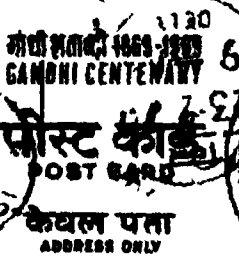 गांधी शताब्दी 1869-1969
GANDHI CENTENARY
पोस्ट कार्ड
POST CARD
केवल पता
ADDRESS ONLY